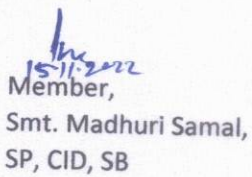 15.11.2022
Member,
Smt. Madhuri Samal,
SP, CID, SB